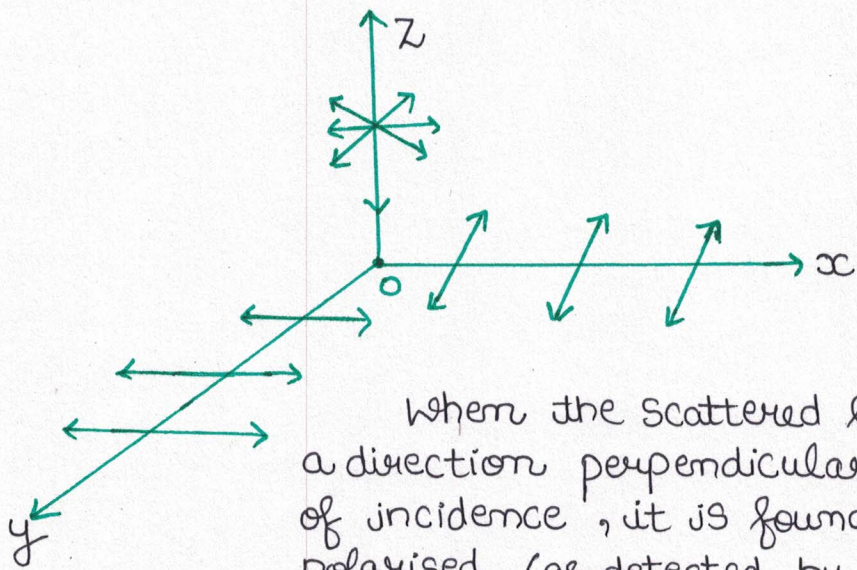 Z
x
O
y
When the scattered
a direction perpendicular
of incidence , it is found
polarised (as detected by